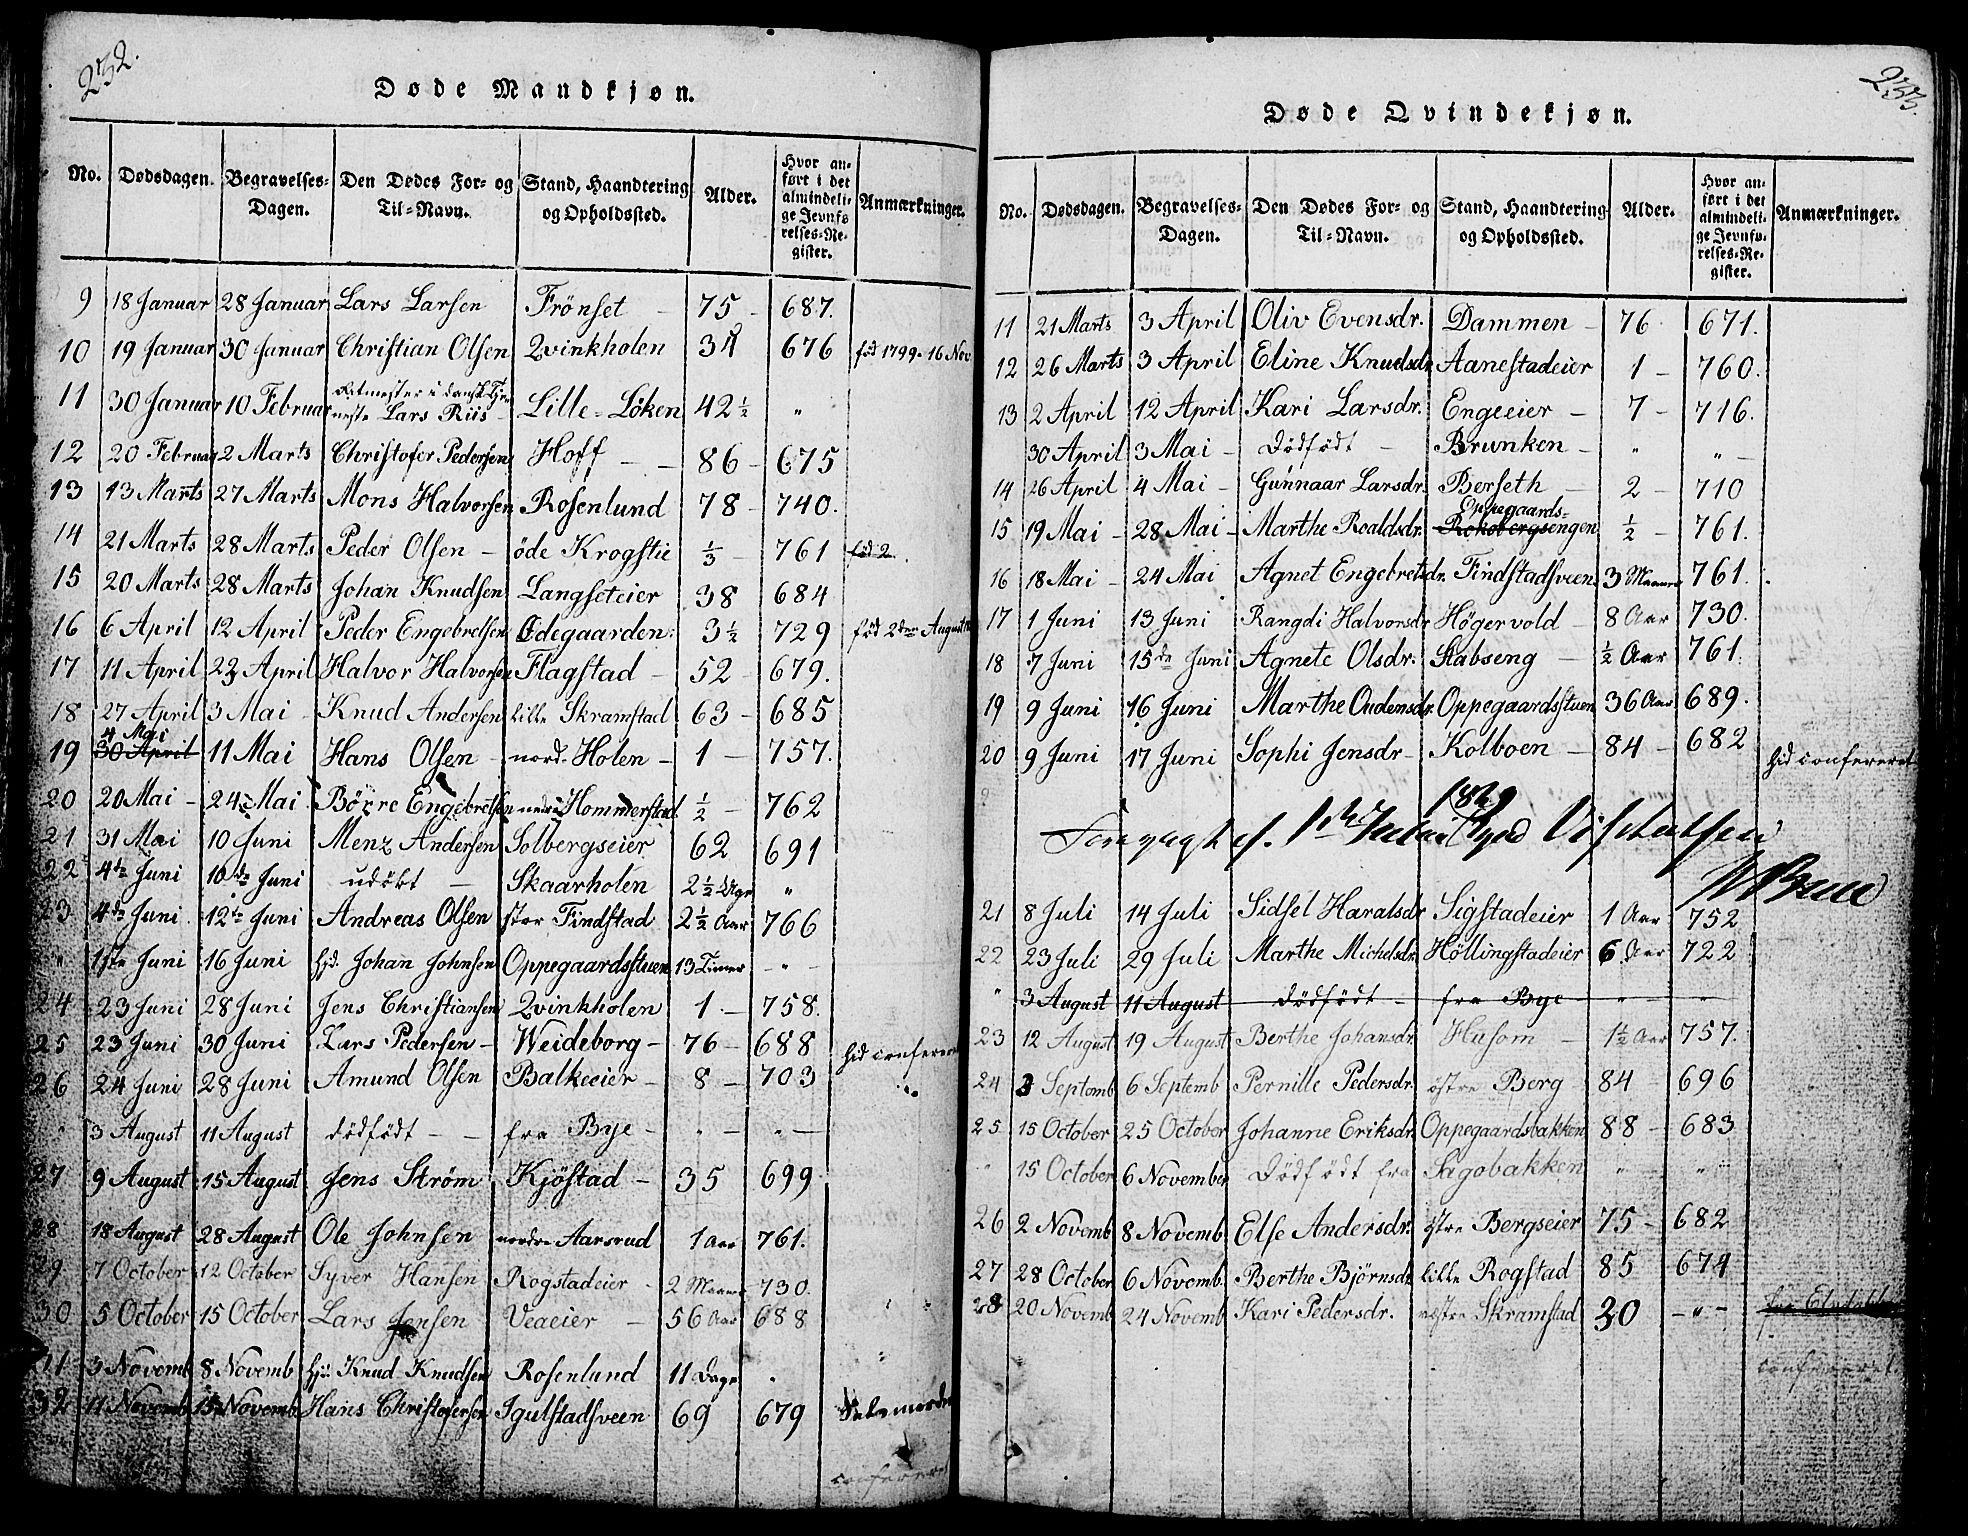 232.
Døde Mandkjøn.
No. Dødsdagen. Begravelses-Dagen. Den Dødes For- og Til-Navn. Stand, Haandtering og Opholdssted. Alder. Hvor anført i det almindelige Jevnførelses-Register. Anmærkninger.
9 18 Januar 28 Januar Lars Larsen Frönset - 75 - 687.
10 19 Januar 30 Januar Christian Olsen Qvinkholen 34 676 föd 1799. 16 Nov.
11 30 Januar 10 Februar Ritmester i dansk Tjeneste Lars Riis - Lille-Löken 42 ½ "
12 20 Februar 2 Marts Christofer Pedersen Hoff - - 86 - 675
13 13 Marts 27 Marts Mons Halvorsen Rosenlund 78 - 740.
14 21 Marts 28 Marts Peder Olsen - öde Krogstie ⅓ - 761 föd 2
15 20 Marts 28 Marts Johan Knudsen Langseteier 38 684
16 6 April 12 April Peder Engebretsen Ödegaarden 3 ½ 729 föd 2den August
17 11 April 23 April Halvor Halvorsen Flagstad - 52 - 679.
18 27 April 3 Mai Knud Andersen lille Skramstad 63 - 685
19 30 April 4 Mai 11 Mai Hans Olsen - nord-Holen - 1 - 757.
20 20 Mai - 24 Mai Börre Engebretsen nedre Hommerstad ½ - 762
21 31 Mai 10 Juni Menz Andersen Solbergseier 62 691
22 4de Juni 10de Juni udökt - Skaarholen 2 ½ Uge "
23 4de Juni 12te Juni Andreas Olsen stor Findstad 2 ½ Aar 766
" 1ste Juni 16 Juni hjd. Johan Johnsen Oppegaardsstuen 13 Timer - " -
24 23 Juni 28 Juni Jens Christiansen Qvinkholen 1 - 758.
25 23 Juni 30 Juni Lars Pedersen - Weideborg - 76 - 688 hid confereret
26 24 Juni 28 Juni Amund Olsen Balkeeier - 8 - 703
" 3 August 11 August dödfödt - - fra Bye - " - " -
27 9 August 15 August Jens Ström Kjöstad - 35 699
28 18 August 28 August Ole Johnsen nordre Aarsrud 1 Aar 761.
29 7 October 12 October Syver Hansen Rogstadeier - 2 Maaner 730.
30 5 October 15 October Lars Jensen Veaeier - 56 Aar 688
11 3 Novemb 8 Novemb hjd Knud Knudsen Rosenlund 11 Dage "
32 11 Novemb 15 Novemb Hans Christofersen Igulstadsveen 69 679 Selvmorder
confereret
233.
Døde Qvindekjøn.
No. Dødsdagen. Begravelses-Dagen. Den Dødes For- og Til-Navn. Stand, Haandtering og Opholdssted. Alder. Hvor anført i det almindelige Jevnførelses-Register. Anmærkninger.
11 21 Marts 3 April Oliv Evensdr. Dammen - 76 671.
12 26 Marts 3 April Eline Knudsdr Aanestadeier 1 - 760.
13 2 April 12 April Kari Larsdr. Engeeier - 7 - 716.
30 April 3 Mai - Dödfödt - Brunken - " " -
14 26 April 4 Mai - Gunnaar Larsdr. Berseth - 2 - 710
15 19 Mai - 28 Mai - Marthe Roaldsdr. Rokobergsengen Oppegaards- ½ - 761.
16 18 Mai - 24 Mai Agnet Engebretsdr. Findstadsveen 3 Maaner 761.
17 1 Juni 13 Juni Rangdi Halvorsdr Högervold - 8 Aar 730.
18 7 Juni 15de Juni Agnete Olsdr. Stabseng - ½ Aar 761.
19 9 Juni 16 Juni Marthe Oudensdr Oppegaardsstuen 36 Aar 689.
20 9 Juni 17 Juni Sophi Jensdr - Kolboen - 84 - 682 hid confereret
Bruu
21 8 Juli 14 Juli Sidsel Haralsdr Sigstadeier 1 Aar 752
22 23 Juli 29 Juli Marthe Michelsdr Höllingstadeier 6 Aar 722
" 3 August 11 August dödfödt - fra Bye - " - "
23 12 August 19 August Berthe Johansdr. Husom - 1½ Aar 757.
24 3 Septemb 6 Septemb Pernille Pedersdr. östre Berg - 84 - 696
25 15 October 25 October Johanne Eriksdr. Oppegaardsbakken 88 - 683
" 15 October 6 November Dödfödt fra Sagobakken " "
26 2 Novemb 8 Novemb. Else Andersdr. östre Bergseier 75 - 682
27 28 October 6 Novemb. Berthe Björnsdr. lille Rogstad 85 674
28 20 Novemb 24 Novemb Kari Pedersdr. vestre Skramstad 30 - " -
confereret